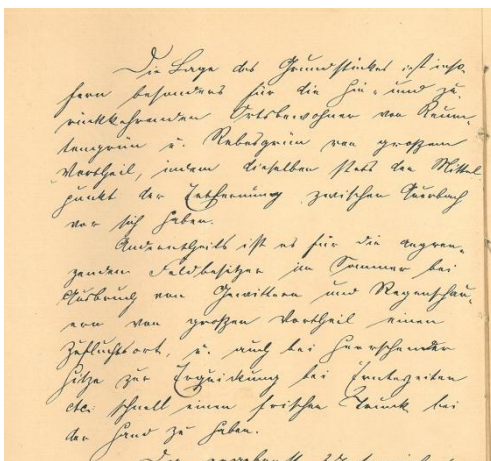 Die Lage des Grundstückes ist inso-
fern besonders für die hin- und zu-
rückkehrenden Ortsbewohner von Reum-
tengrün u. Rebesgrün von großem
Vortheil, indem dieselben stets den Mittel
punkt der Entfernung zwischen Auerbach
vor sich haben.
Anderntheils ist es für die angren-
zenden Feldbesitzer im Sommer bei
Ausbruch von Gewittern und Regenschau-
ern von großen Vortheil einen
Zufluchtsort, u. auch bei herrschender
Hitze zur Erquickung bei Erntezeiten
etc. schnell einen frischen Trunk bei
der Hand zu haben.